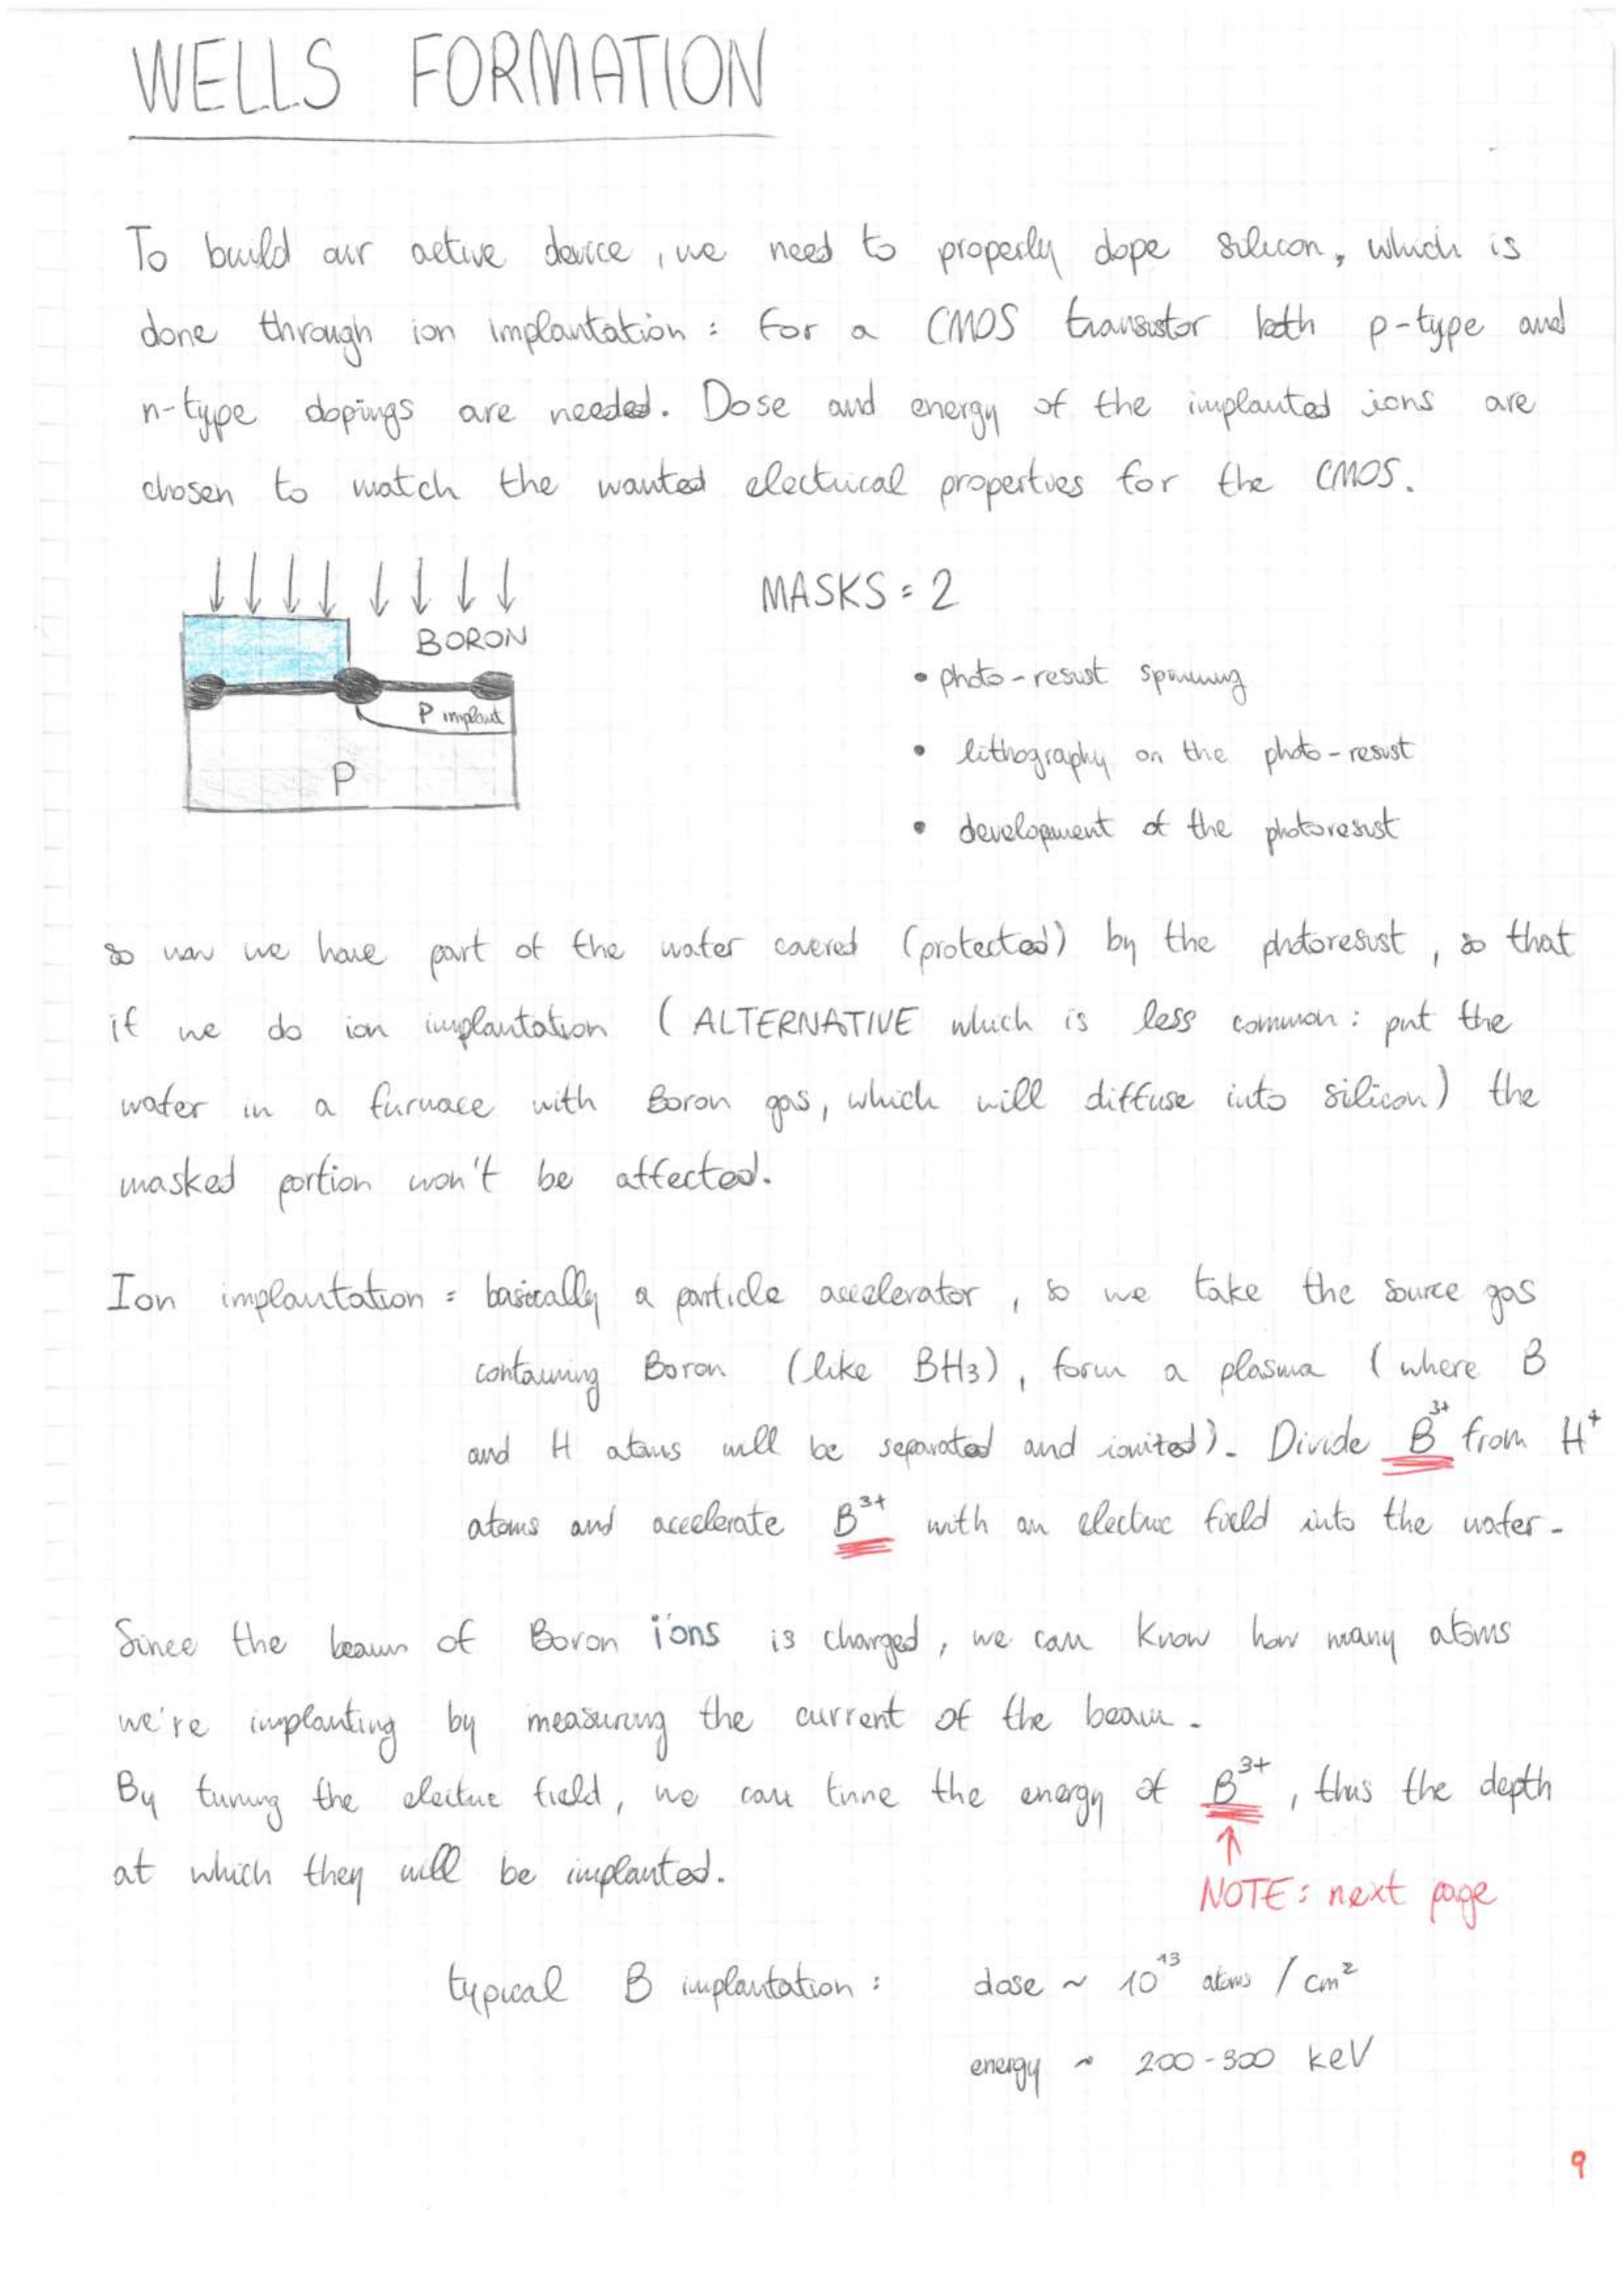 WELLS FORMATION
To build our active device, we need to properly dope silicon, which is
done through ion implantation: for a CMOS transistor both p-type and
n-type dopings are needed. Dose and energy of the implanted ions are
chosen to match the wanted electrical properties for the CMOS.
BORON
P implant
P
MASKS = 2
• photo-resist spinning
• lithography on the photo-resist
• development of the photoresist
so now we have part of the wafer covered (protected) by the photoresist, so that
if we do ion implantation (ALTERNATIVE which is less common: put the
wafer in a furnace with Boron gas, which will diffuse into silicon) the
masked portion won't be affected.
Ion implantation = basically a particle accelerator, so we take the source gas
containing Boron (like BH3), form a plasma (where B
and H atoms will be separated and ionized). Divide B³⁺ from H⁺
atoms and accelerate B³⁺ with an electric field into the wafer.
Since the beam of Boron ions is charged, we can know how many atoms
we're implanting by measuring the current of the beam.
By tuning the electric field, we can tune the energy of B³⁺, thus the depth
at which they will be implanted.
↑
NOTE: next page
typical B implantation: dose ~ 10¹³ atoms / cm²
energy ~ 200-300 keV
9